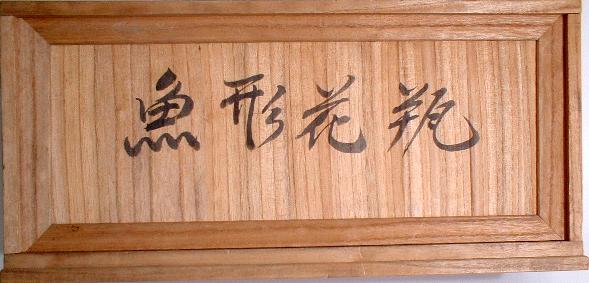 魚形花瓶